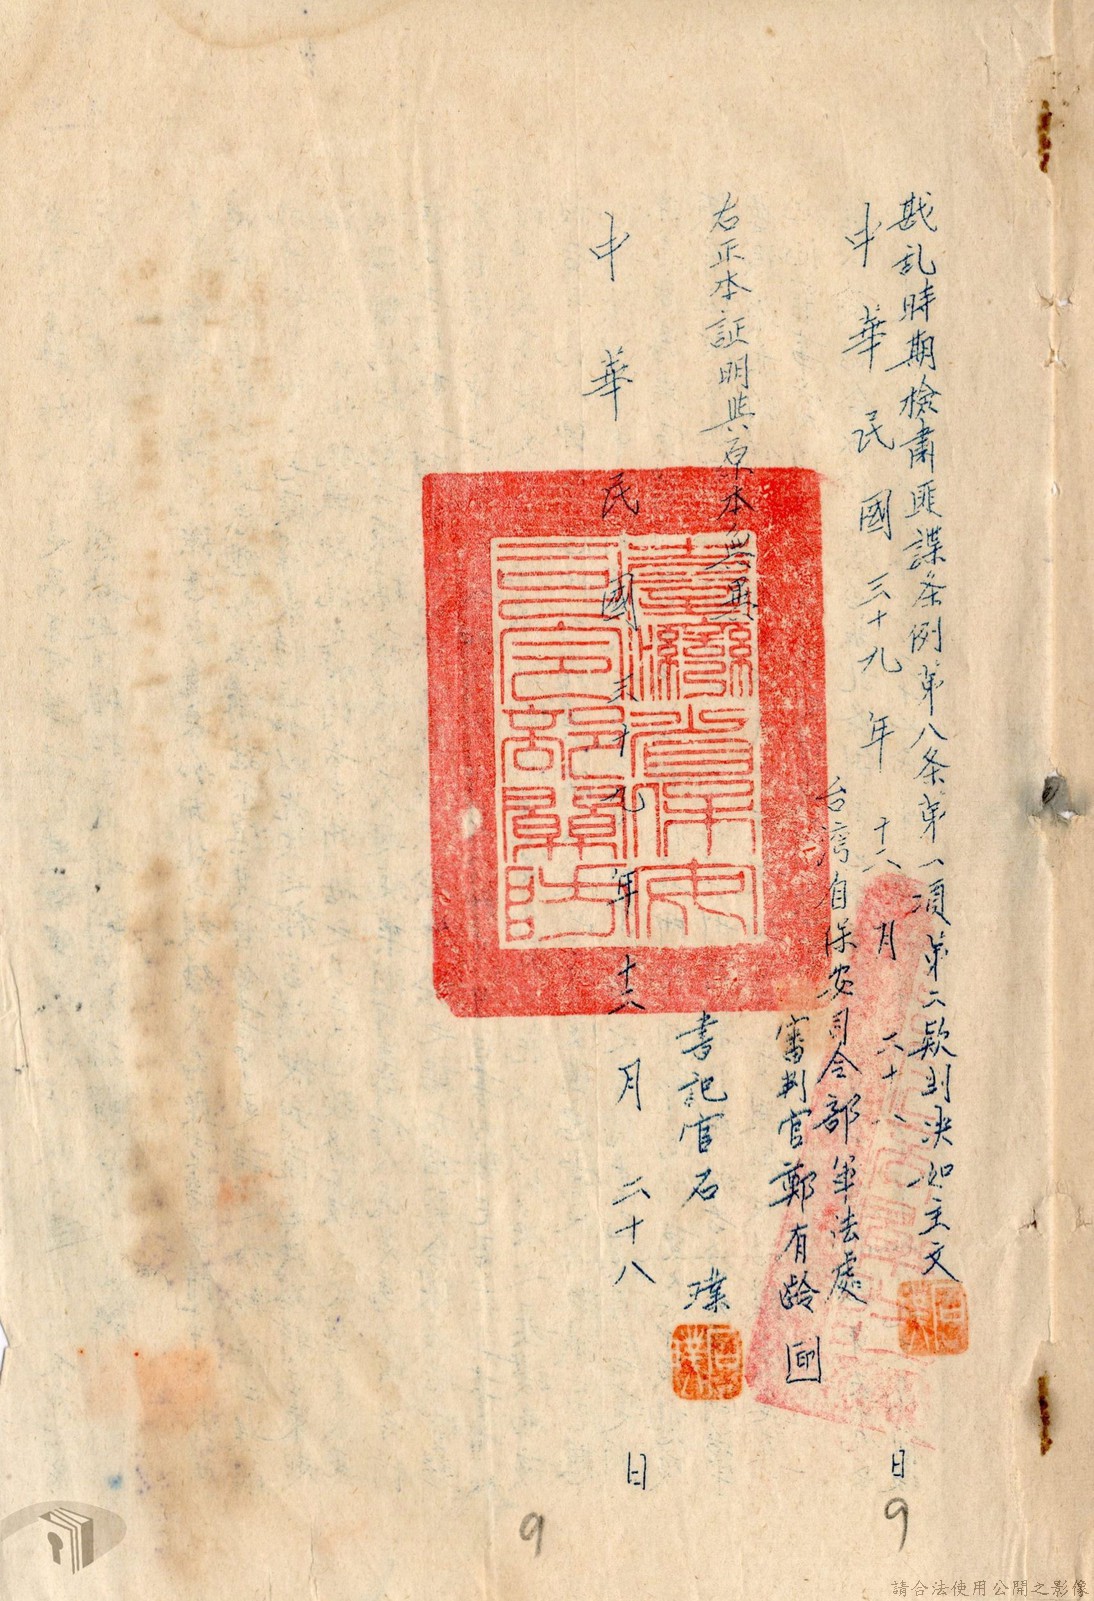 戡乱時期檢肅匪諜条例第八条第一項第二款判決如主文
中華民國三十九年十二月二十八日
台湾省保安司令部軍法處
審判官鄭有齡 印
右正本証明與原本無異
書記官石璞
中華民國三十九年十二月二十八日
臺灣省保安
司令部關防
9
9
請合法使用公開之影像